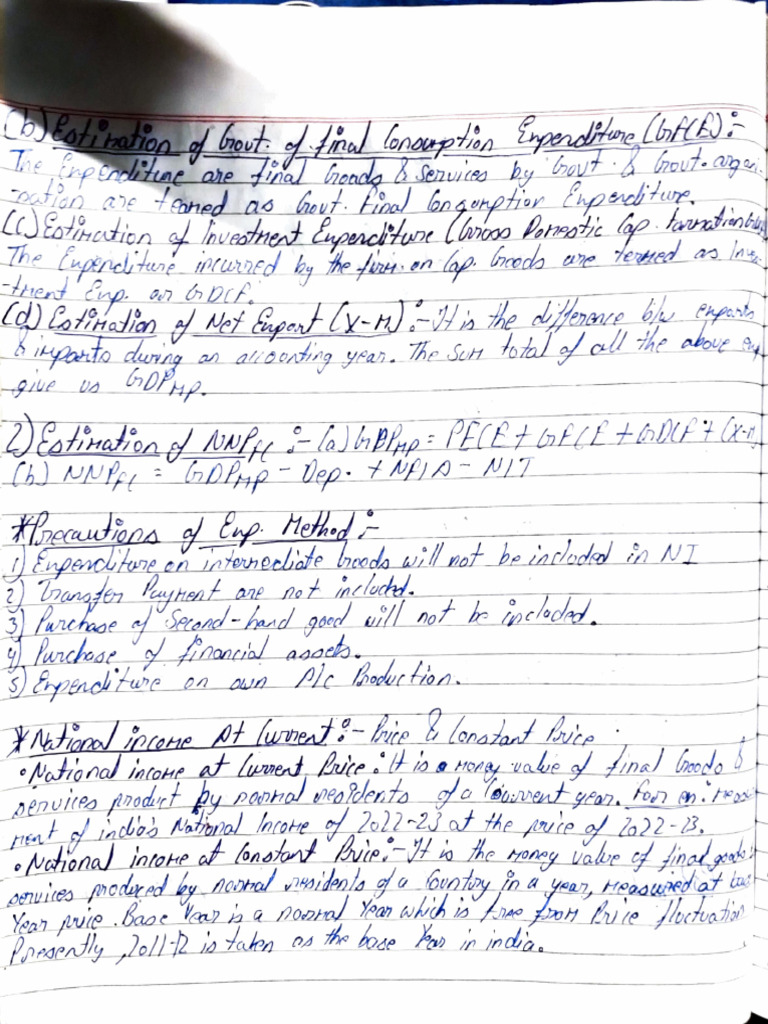 (b) Estimation of Govt. of final Consumption Expenditure (GFCE):-
The Expenditure are final Goods & Services by Govt. & Govt. organi-
-nation are teamed as Govt. Final Consumption Expenditure.
(c) Estimation of Investment Expenditure (Gross Domestic Cap. Formation
The Expenditure incurred by the firm on Cap. Goods are termed as Inves-
-tment Exp. or GDCF.
(d) Estimation of Net Export (X-M):- It is the difference b/w exports
& imports during an accounting year. The sum total of all the above exp
give us GDPMP.
2) Estimation of NNPFC :- (a) GDPMP = PFCE + GFCE + GDCF + (X-M)
(b) NNPFC = GDPMP - Dep. + NFIA - NIT
*Precautions of Exp. Method:-
1) Expenditure on intermediate Goods will not be included in NI
2) Transfer Payment are not included.
3) Purchase of Second-hand good will not be included.
4) Purchase of financial assets.
5) Expenditure on own A/c Production.
*National income At Current:- Price & Constant Price
• National income at Current Price: It is a money value of final Goods &
services product by normal residents of a Current year. For ex: Measu
ment of india's National Income of 2022-23 at the price of 2022-23.
• National income at Constant Price:- It is the money value of final goods &
services produced by normal residents of a Country in a year, measured at base
Year price. Base Year is a normal Year which is free from Price fluctuation
Presently, 2011-12 is taken as the base Year in india.